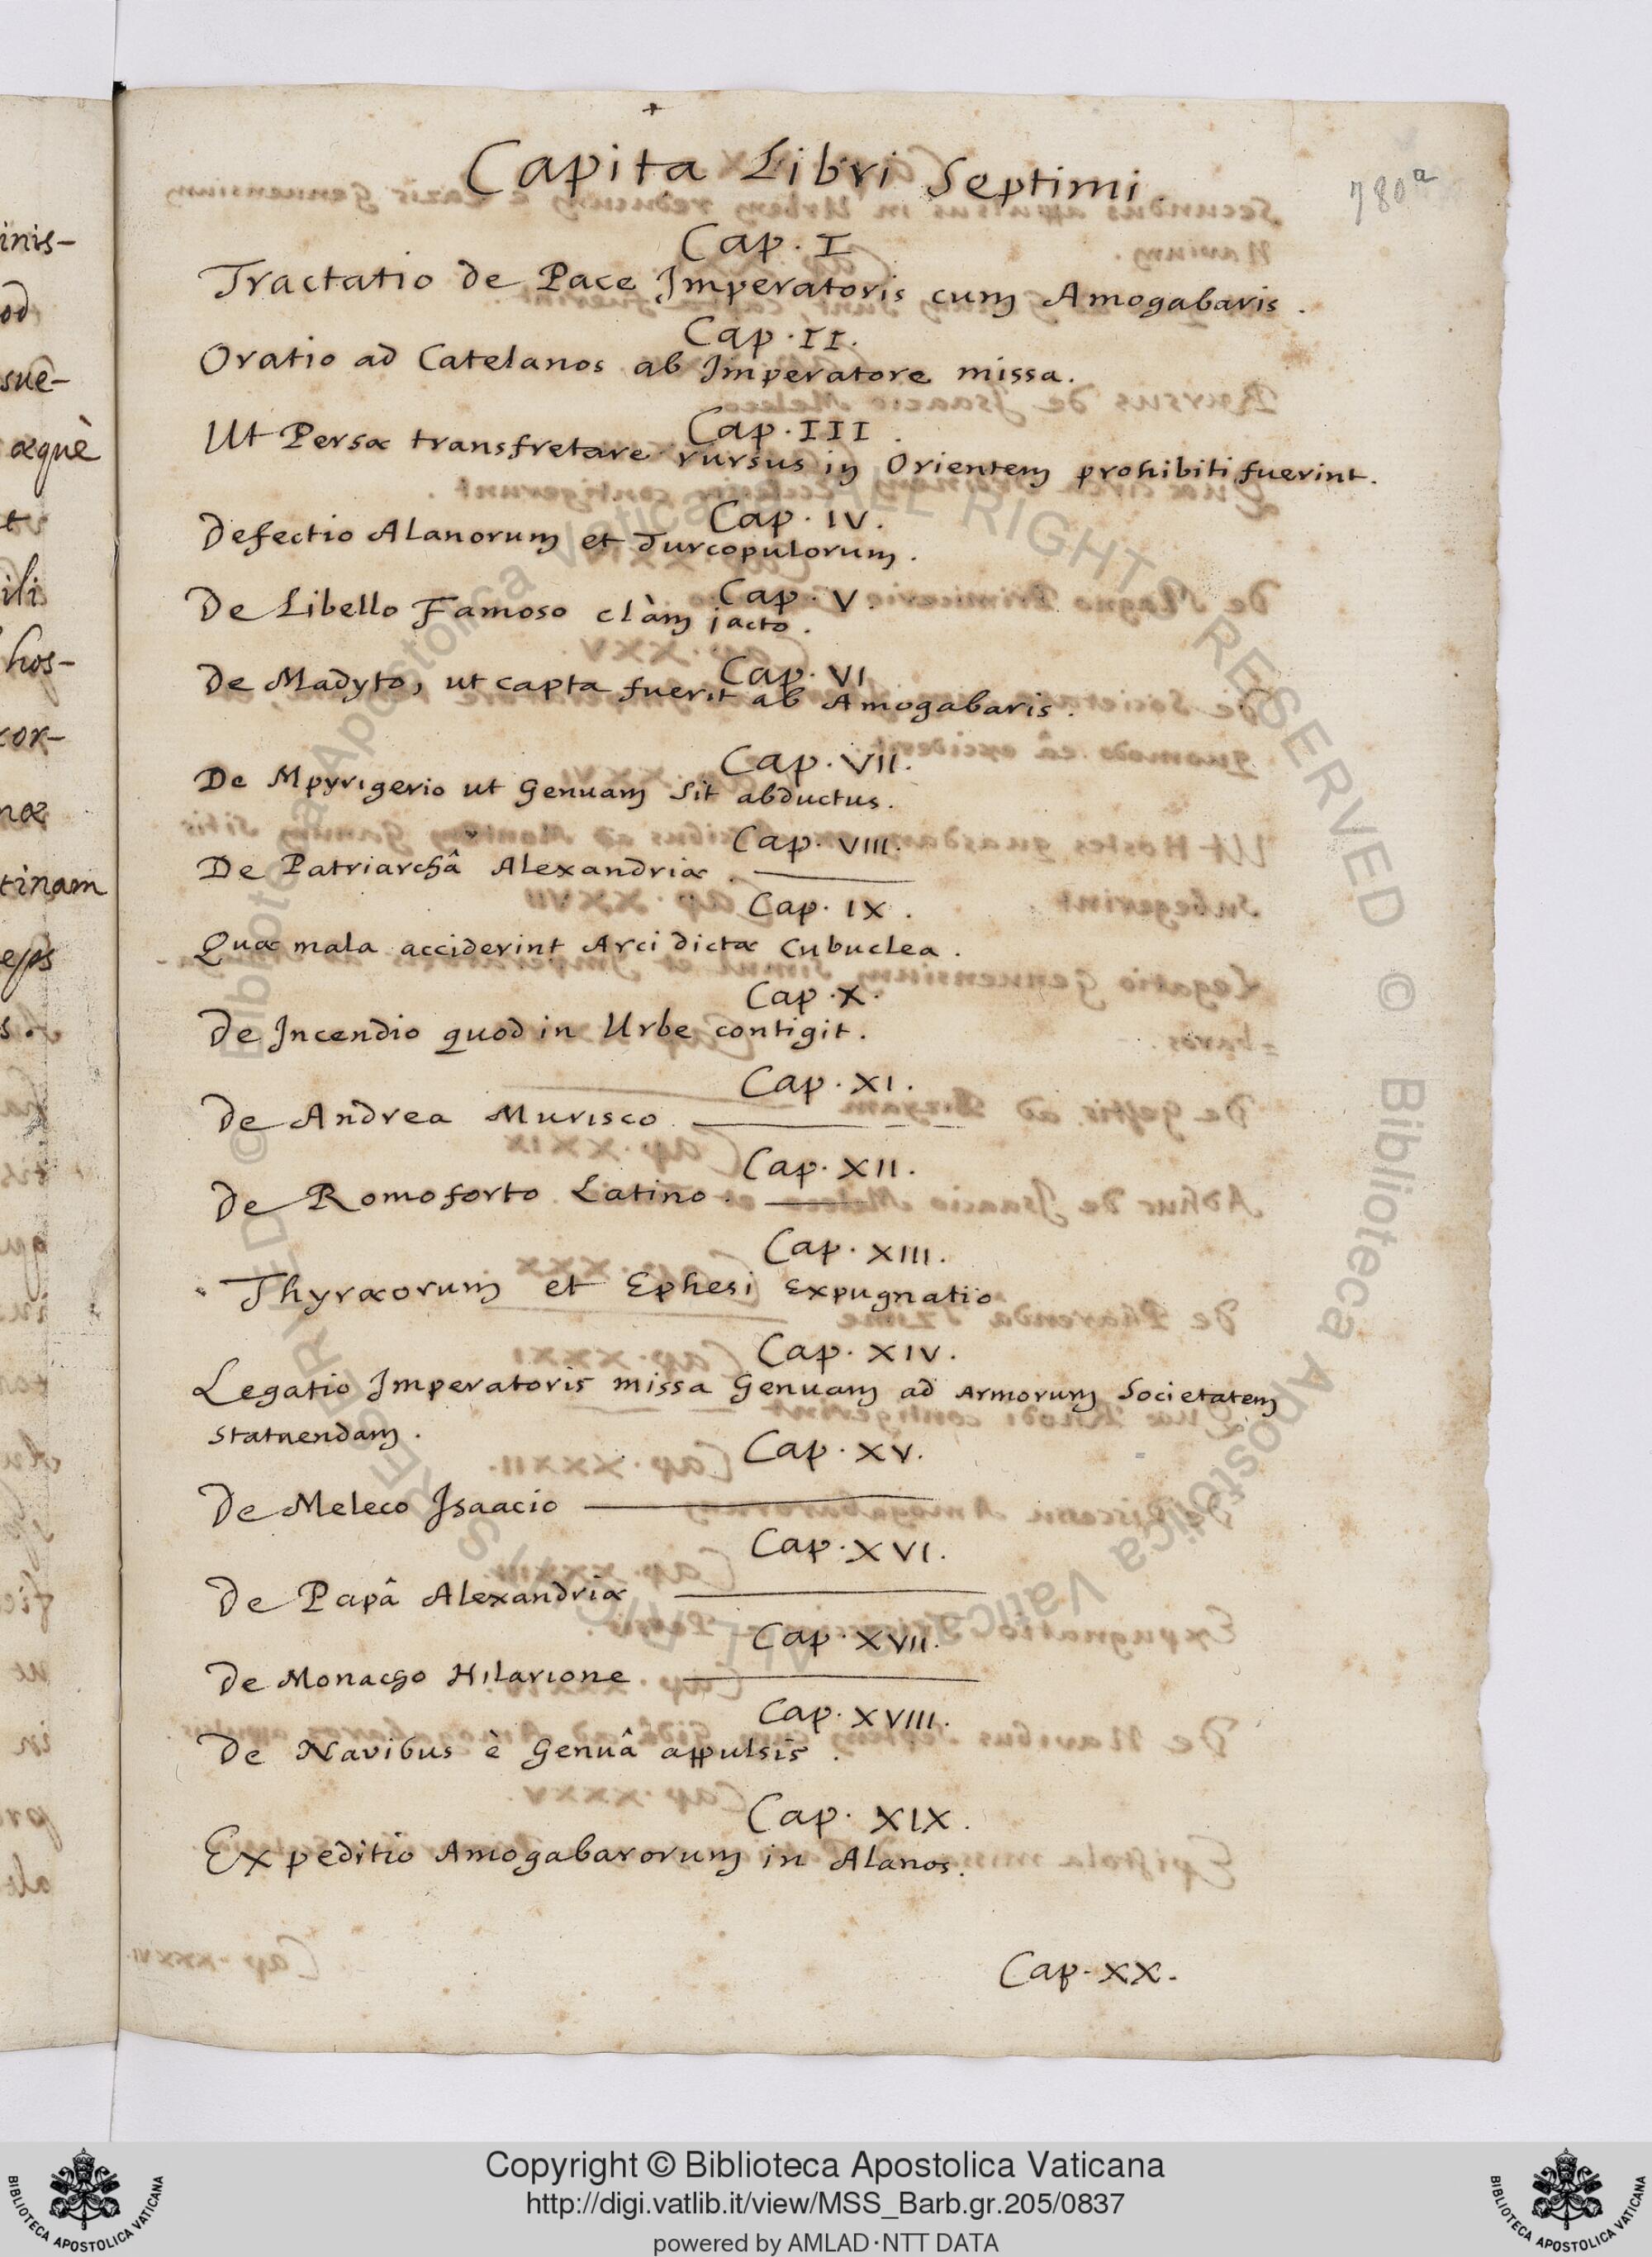 Capita Libri Septimi
780a
Cap. I
Tractatio de Pace Imperatoris cum Amogabaris.
Cap. II.
Oratio ad Catelanos ab Imperatore missa.
Cap. III.
Ut Persæ transfretare rursus in Orientem prohibiti fuerint.
Cap. IV.
Defectio Alanorum et Turcopulorum.
Cap. V.
De Libello Famoso clàm jacto.
Cap. VI
De Madyto, ut capta fuerit ab Amogabaris.
Cap. VII.
De Mpyrigerio ut Genuam sit abductus.
Cap. VIII.
De Patriarchâ Alexandriæ.
Cap. IX.
Quæ mala acciderint Arci dictæ Cubuclea.
Cap. X.
De Incendio quod in Urbe contigit.
Cap. XI.
De Andrea Murisco.
Cap. XII.
De Romoforto Latino.
Cap. XIII.
Thyræorum et Ephesi Expugnatio
Cap. XIV.
Legatio Imperatoris missa Genuam ad Armorum Societatem
statuendam.
Cap. XV.
De Meleco Isaacio
Cap. XVI.
De Papâ Alexandriæ
Cap. XVII.
De Monacho Hilarione
Cap. XVIII.
De Navibus è Genuâ appulsis.
Cap. XIX.
Expeditio Amogabarorum in Alanos.
Cap. XX.
inis-
od
sue-
æquè
t
ili
hos-
cor-
næ
tinam
s.
Copyright © Biblioteca Apostolica Vaticana
http://digi.vatlib.it/view/MSS_Barb.gr.205/0837
powered by AMLAD·NTT DATA
BIBLIOTECA APOSTOLICA VATICANA
BIBLIOTECA APOSTOLICA VATICANA